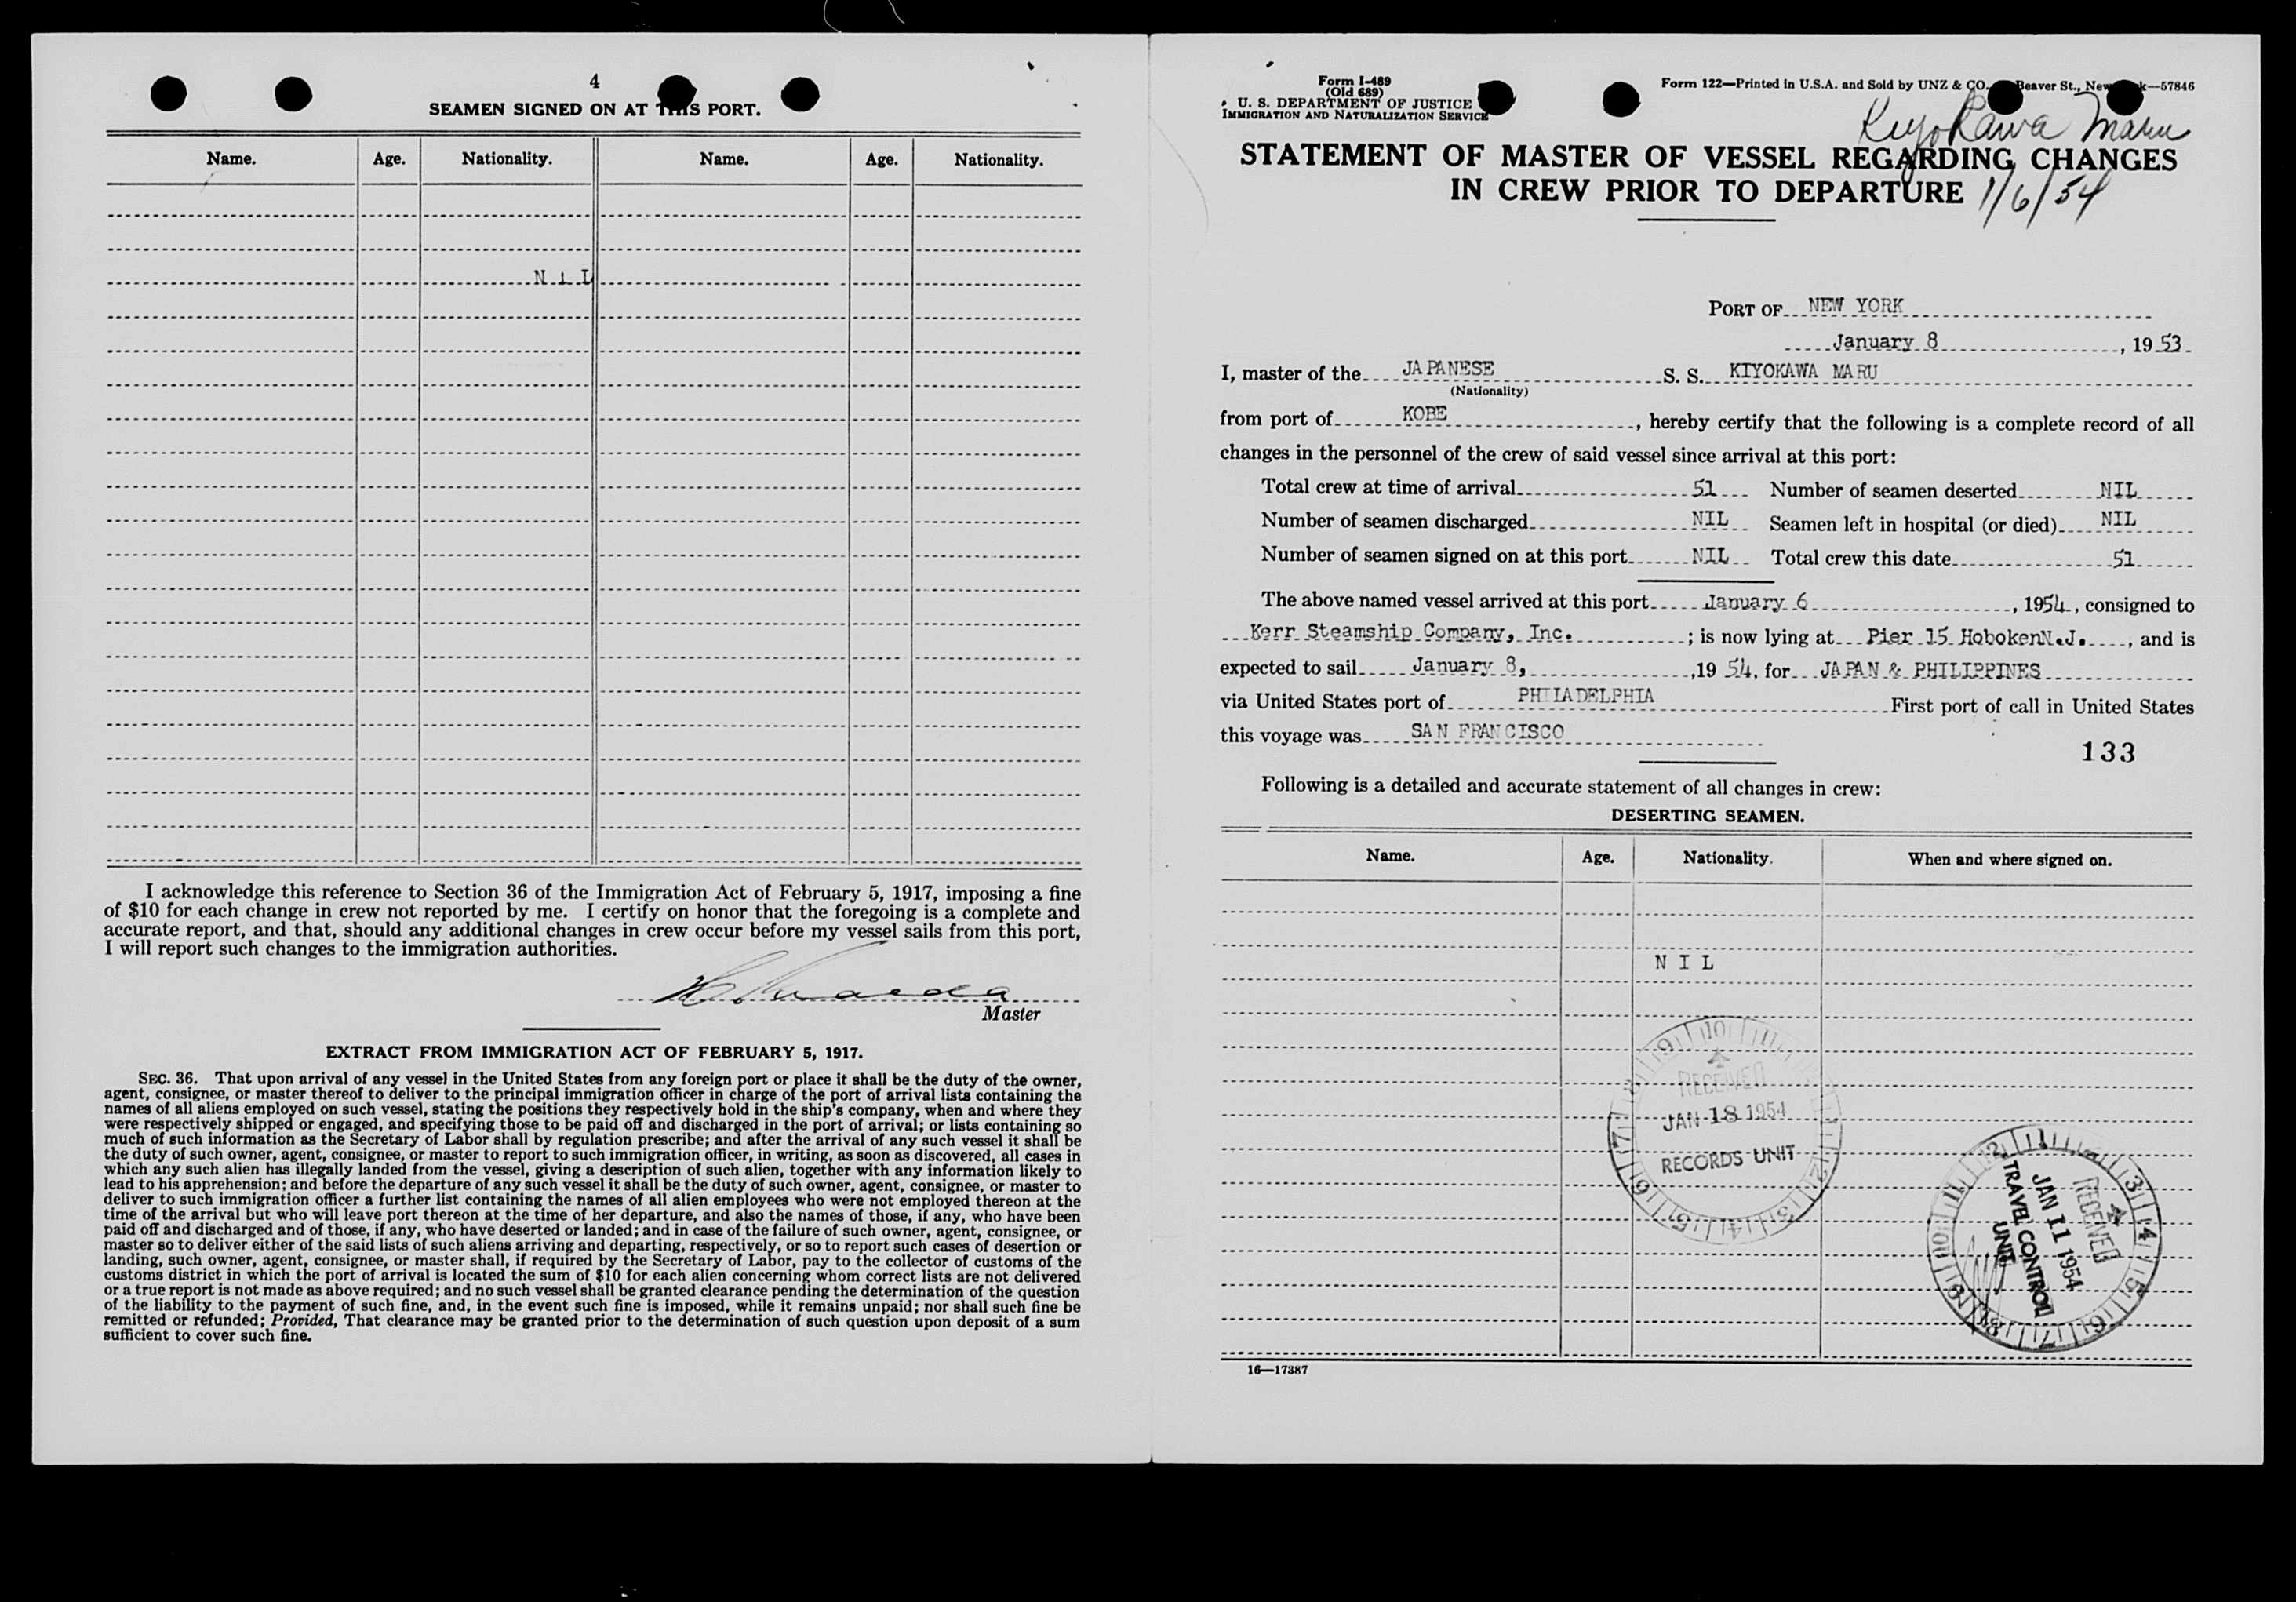 4
SEAMEN SIGNED ON AT THIS PORT.
Name. Age. Nationality. Name. Age. Nationality.
N I L
I acknowledge this reference to Section 36 of the Immigration Act of February 5, 1917, imposing a fine
of $10 for each change in crew not reported by me. I certify on honor that the foregoing is a complete and
accurate report, and that, should any additional changes in crew occur before my vessel sails from this port,
I will report such changes to the immigration authorities.
Master
EXTRACT FROM IMMIGRATION ACT OF FEBRUARY 5, 1917.
SEC. 36. That upon arrival of any vessel in the United States from any foreign port or place it shall be the duty of the owner,
agent, consignee, or master thereof to deliver to the principal immigration officer in charge of the port of arrival lists containing the
names of all aliens employed on such vessel, stating the positions they respectively hold in the ship's company, when and where they
were respectively shipped or engaged, and specifying those to be paid off and discharged in the port of arrival; or lists containing so
much of such information as the Secretary of Labor shall by regulation prescribe; and after the arrival of any such vessel it shall be
the duty of such owner, agent, consignee, or master to report to such immigration officer, in writing, as soon as discovered, all cases in
which any such alien has illegally landed from the vessel, giving a description of such alien, together with any information likely to
lead to his apprehension; and before the departure of any such vessel it shall be the duty of such owner, agent, consignee, or master to
deliver to such immigration officer a further list containing the names of all alien employees who were not employed thereon at the
time of the arrival but who will leave port thereon at the time of her departure, and also the names of those, if any, who have been
paid off and discharged and of those, if any, who have deserted or landed; and in case of the failure of such owner, agent, consignee, or
master so to deliver either of the said lists of such aliens arriving and departing, respectively, or so to report such cases of desertion or
landing, such owner, agent, consignee, or master shall, if required by the Secretary of Labor, pay to the collector of customs of the
customs district in which the port of arrival is located the sum of $10 for each alien concerning whom correct lists are not delivered
or a true report is not made as above required; and no such vessel shall be granted clearance pending the determination of the question
of the liability to the payment of such fine, and, in the event such fine is imposed, while it remains unpaid; nor shall such fine be
remitted or refunded; Provided, That clearance may be granted prior to the determination of such question upon deposit of a sum
sufficient to cover such fine.
Form I-489
(Old 689)
U. S. DEPARTMENT OF JUSTICE
IMMIGRATION AND NATURALIZATION SERVICE
Form 122—Printed in U.S.A. and Sold by UNZ & CO. Beaver St., New —57846
Kiyokawa Maru
STATEMENT OF MASTER OF VESSEL REGARDING CHANGES
IN CREW PRIOR TO DEPARTURE 1/6/54
PORT OF NEW YORK
January 8, 1953
I, master of the JAPANESE S. S. KIYOKAWA MARU
(Nationality)
from port of KOBE, hereby certify that the following is a complete record of all
changes in the personnel of the crew of said vessel since arrival at this port:
Total crew at time of arrival 51 Number of seamen deserted NIL
Number of seamen discharged NIL Seamen left in hospital (or died) NIL
Number of seamen signed on at this port NIL Total crew this date 51
The above named vessel arrived at this port January 6, 1954, consigned to
Kerr Steamship Company, Inc.; is now lying at Pier 15 HobokenN.J., and is
expected to sail January 8, ,1954, for JAPAN & PHILIPPINES
via United States port of PHILADELPHIA First port of call in United States
this voyage was SAN FRANCISCO
133
Following is a detailed and accurate statement of all changes in crew:
DESERTING SEAMEN.
Name. Age. Nationality. When and where signed on.
N I L
RECEIVED
JAN 18 1954
RECORDS UNIT
RECEIVED
JAN 11 1954
TRAVEL CONTROL
UNIT
16—17387